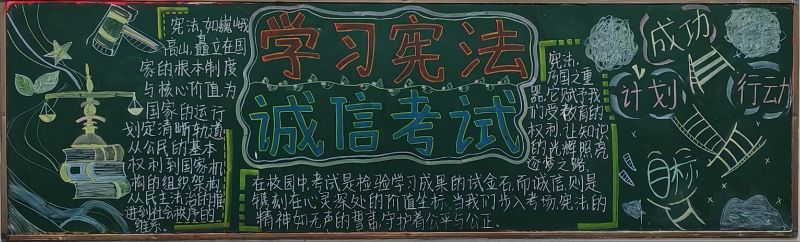 宪法,如巍峨
高山,矗立在国
家的根本制度
与核心价值为
国家的运行
划定清晰轨道
从公民的基本
权利到国家机
构的组织架构,
从民主法治的推
进到社会秩序的
维系。
学习宪法
诚信考试
宪法,
乃国之重
器,它赋予我
们受教育的
权利,让知识
的光辉照亮
逐梦之路。
在校园中,考试是检验学习成果的试金石,而诚信,则是
镌刻在心灵深处的价值坐标,当我们步入考场,宪法的
精神如无声的誓言,守护着公平与公正。
成功
计划
行动
目标